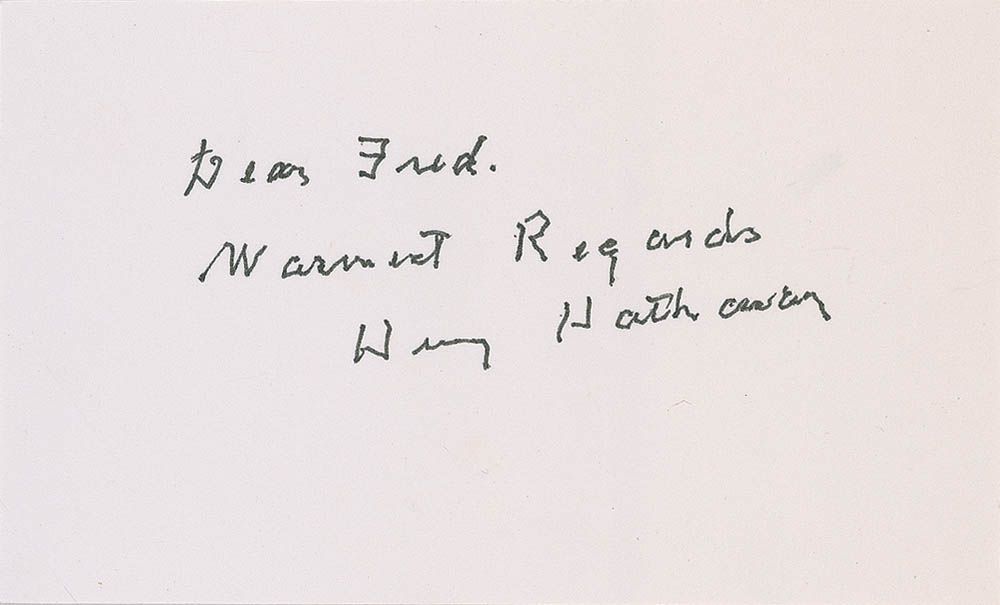 Dear Fred.
Warmest Regards
Henry Hathaway